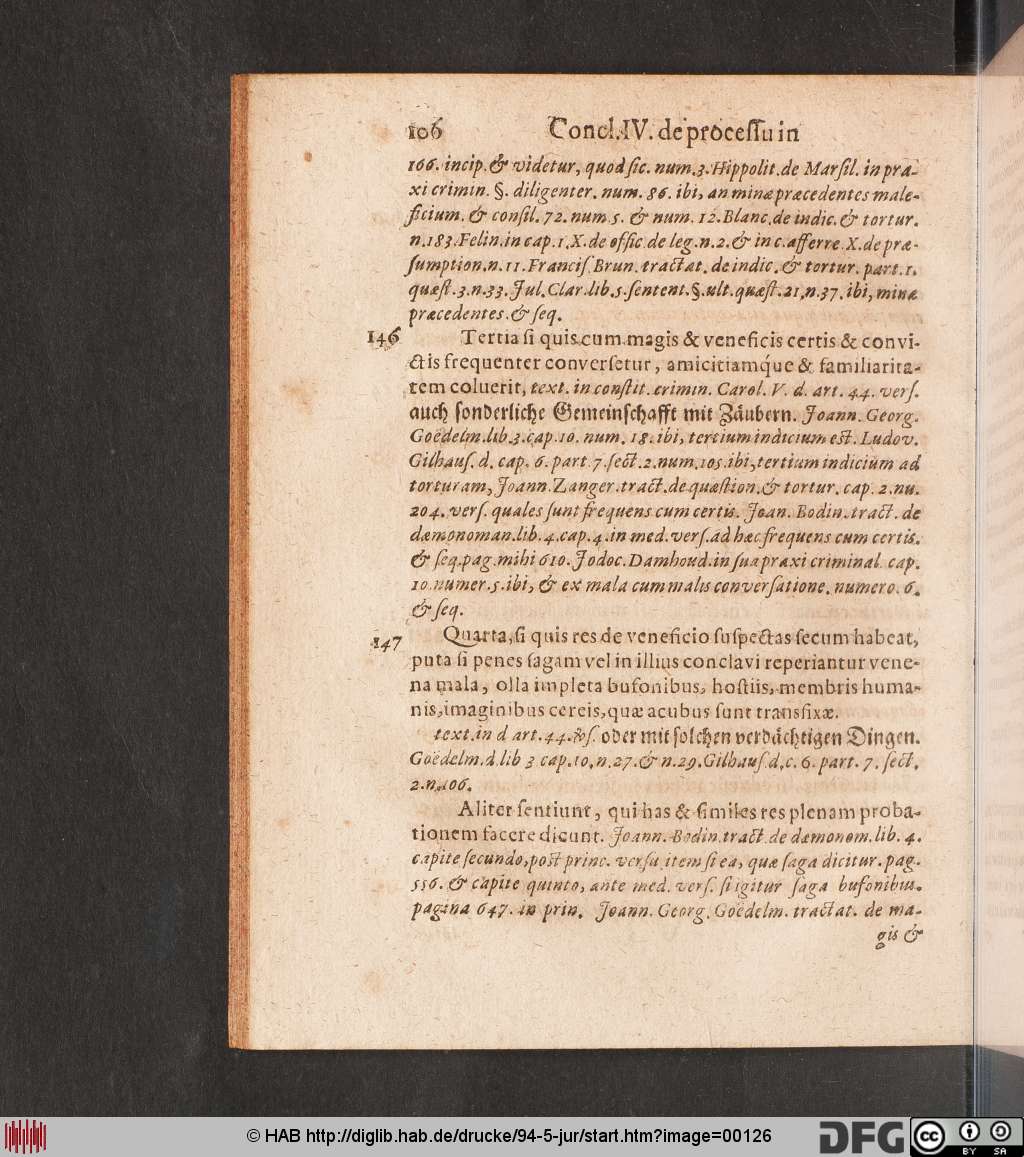 106 Concl. IV. de processu in
166. incip. & videtur, quod sic. num. 3. Hippolit. de Marsil. in pra-
xi crimin. §. diligenter. num. 86. ibi, an minæ præcedentes male-
ficium. & consil. 72. num. 5. & num. 12. Blanc. de indic. & tortur.
n. 183. Felin. in cap. 1. X. de offic. de leg. n. 2. & in c. afferre. X. de præ-
sumption. n. 11. Francis. Brun. tractat. de indic. & tortur. part. 1.
quæst. 3. n. 33. Jul. Clar. lib. 5. sentent. §. ult. quæst. 21. n. 37. ibi, minæ
præcedentes. & seq.
146 Tertia si quis cum magis & veneficis certis & convi-
ctis frequenter conversetur, amicitiamq́ue & familiarita-
tem coluerit, text. in constit. crimin. Carol. V. d. art. 44. vers.
auch sonderliche Gemeinschafft mit Zäubern. Joann. Georg.
Goëdelm. lib. 3. cap. 10. num. 18. ibi, tertium indicium est. Ludov.
Gilhaus. d. cap. 6. part. 7. sect. 2. num. 105. ibi, tertium indicium ad
torturam, Joann. Zanger. tract. de quæstion. & tortur. cap. 2. nu.
204. vers. quales sunt frequens cum certis. Joan. Bodin. tract. de
dæmonoman. lib. 4. cap. 4. in med. vers. ad hæc frequens cum certis.
& seq. pag. mihi 610. Jodoc. Damhoud. in sua praxi criminal. cap.
10. numer. 5. ibi, & ex mala cum malis conversatione. numero. 6.
& seq.
147 Quarta, si quis res de veneficio suspectas secum habeat,
puta si penes sagam vel in illius conclavi reperiantur vene-
na mala, olla impleta bufonibus, hostiis, membris huma-
nis, imaginibus cereis, quæ acubus sunt transfixæ.
text. in d art. 44. vers. oder mit solchen verdächtigen Dingen.
Goëdelm. d. lib 3 cap. 10. n. 27. & n. 29. Gilhaus. d. c. 6. part. 7. sect.
2. n. 106.
Aliter sentiunt, qui has & similes res plenam proba-
tionem facere dicunt. Joann. Bodin. tract. de dæmonom. lib. 4.
capite secundo, post princ. versu item si ea, quæ saga dicitur. pag.
556. & capite quinto, ante med. vers. si igitur saga bufonibus.
pagina 647. in prin. Joann. Georg. Goëdelm. tractat. de ma-
gis &
© HAB http://diglib.hab.de/drucke/94-5-jur/start.htm?image=00126
DFG cc BY SA